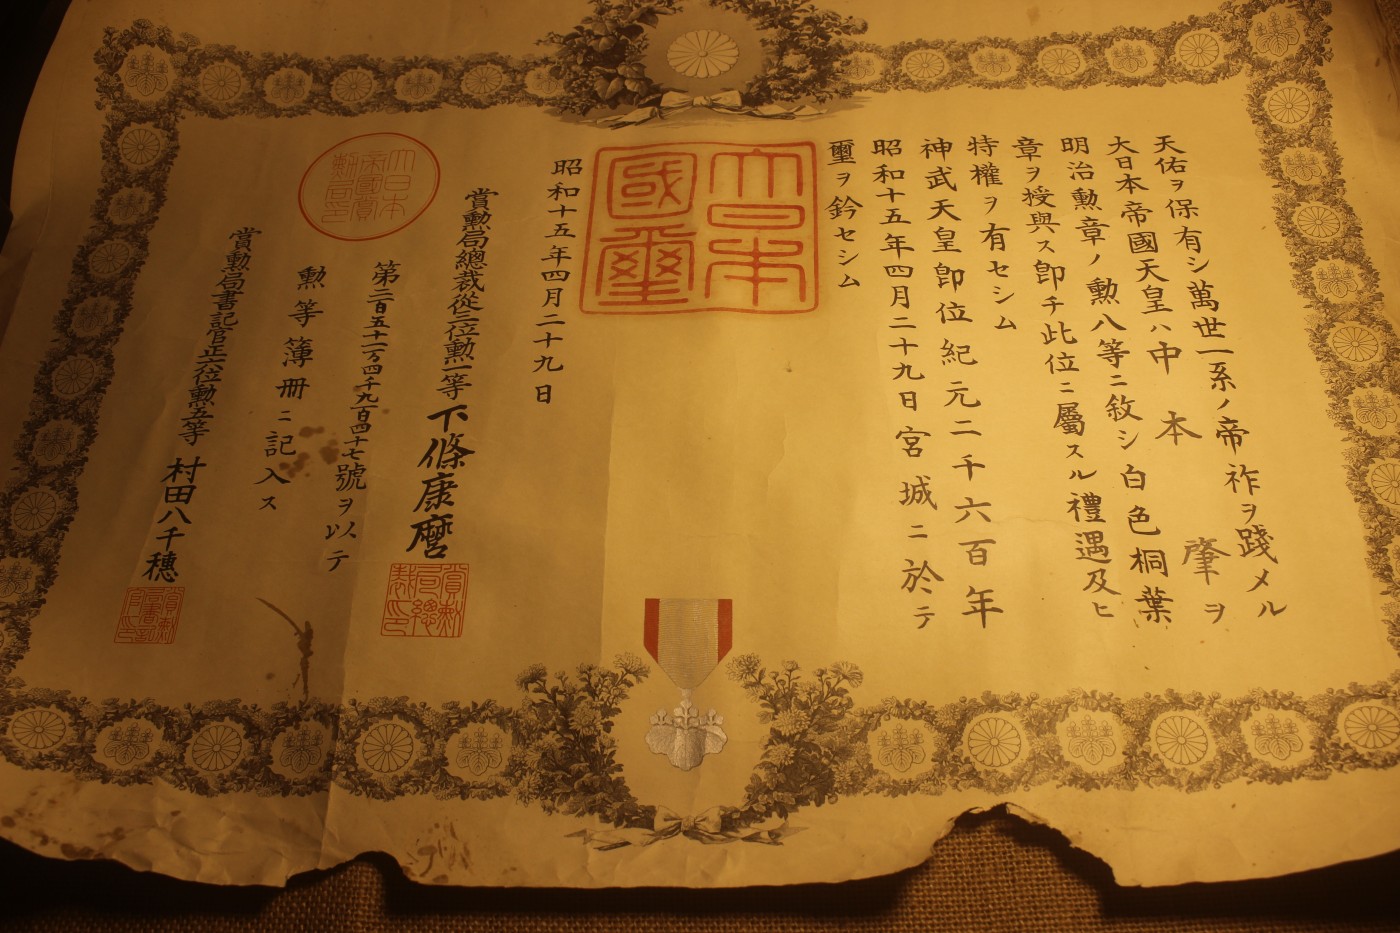 天佑ヲ保有シ萬世一系ノ帝祚ヲ踐メル
大日本帝國天皇ハ中本肇ヲ
明治勲章ノ勲八等ニ敘シ白色桐葉
章ヲ授與ス卽チ此位ニ屬スル禮遇及ヒ
特權ヲ有セシム
神武天皇卽位紀元二千六百年
昭和十五年四月二十九日宮城ニ於テ
璽ヲ鈐セシム
大日本國璽
昭和十五年四月二十九日
賞勲局總裁從三位勲一等下條康麿
賞勲局總裁印
第二百五十一万四千九百四十七號ヲ以テ
勲等簿冊ニ記入ス
大日本帝國賞勲局印
賞勲局書記官正六位勲五等村田八千穗
賞勲局書記官印